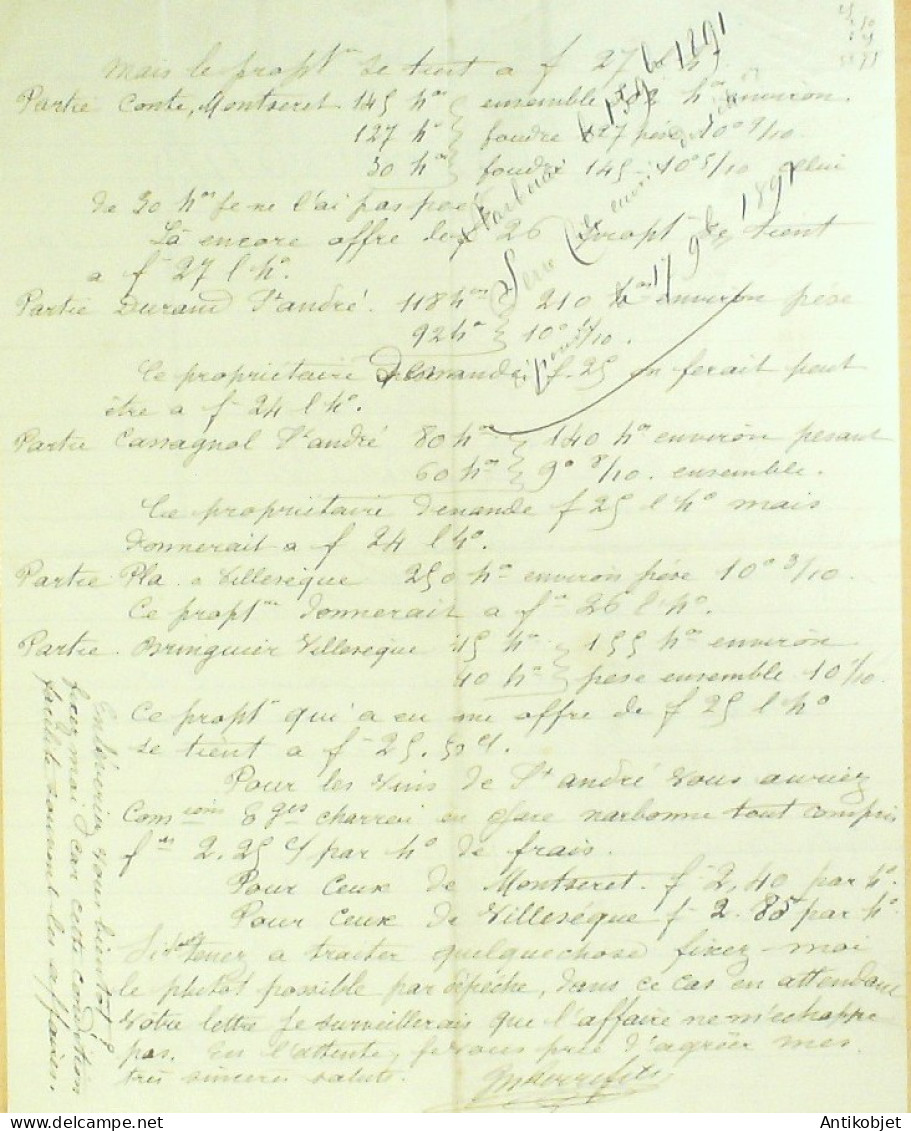 Mais le propt^re se tient a f 27 l h^o.
Partie Conte, Montseret 145 h^os ensemble 302 h^os environ.
127 h^os foudre 127 pèse 10° 9/10
30 h^os foudre 145 - 10° 5/10 celui
de 30 h^os je ne l'ai pas pesé
Là encore offre de f 26 propt^re se tient
a f 27 l h^o.
Partie Durand St andré. 118 h^os 210 h^os environ pèse
92 h^os 10° 1/10.
Ce propriétaire demande f. 25 on ferait peut
être a f 24 l h^o.
Partie Cassagnol St andré 80 h^os 140 h^os environ pesant
60 h^os 9° 8/10. ensemble.
Ce propriétaire demande f 25 l h^o mais
donnerait a f 24 l h^o.
Partie Pla a Villesèque 250 h^os environ pèse 10° 3/10.
Ce propt^re donnerait a f 26 l h^o.
Partie Bringuier Villesèque 115 h^os 155 h^os environ
40 h^os pèse ensemble 10 1/10.
Ce propt^re qui a eu une offre de f 25 l h^o
se tient a f 25.50 ct.
Pour les vins de St andré vous auriez
Com^sions 8^ges charroi en gare narbonne tout compris
f^cs 2.25 ct par h^o de frais.
Pour ceux de Montseret f 2,40 par h^o.
Pour ceux de Villesèque f 2.85 par h^o.
Si tenez a traiter quelquechose fixez-moi
le plutot possible par dépêche, dans ce cas en attendant
votre lettre je surveillerais que l'affaire ne m'échappe
pas. En l'attente, je vous prie d'agréer mes
très sincères saluts.
Narbonne 15 9bre 1891
17 9bre 1891
fixez moi car cette condition
facilite souvent les affaires.
Antikobjet - www.delcampe.net